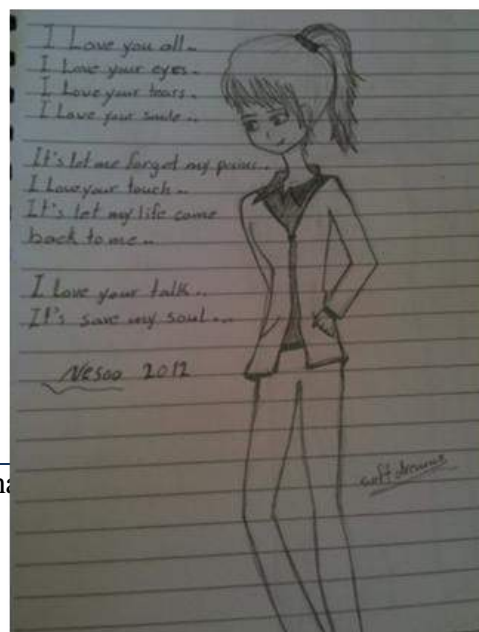 I Love you all..
I Love your eyes..
I Love your tears..
I Love your smile..
It's let me forget my pain...
I Love your touch..
It's let my life come
back to me..
I Love your talk..
It's save my soul...
Nesoo 2012
soft dreams